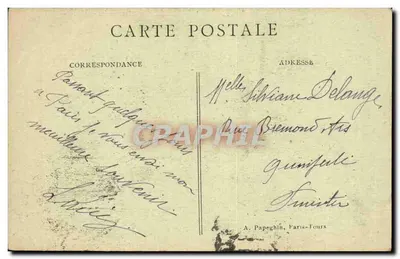 CARTE POSTALE
CORRESPONDANCE
Passant quelques jours
a Paris je vous envoi mon
meilleur souvenir
ADRESSE
Melle Silviane Delange
Rue Bremond Ars
Quimperlé
Finister
CRAPHIL
A. Papeghin, Paris-Tours